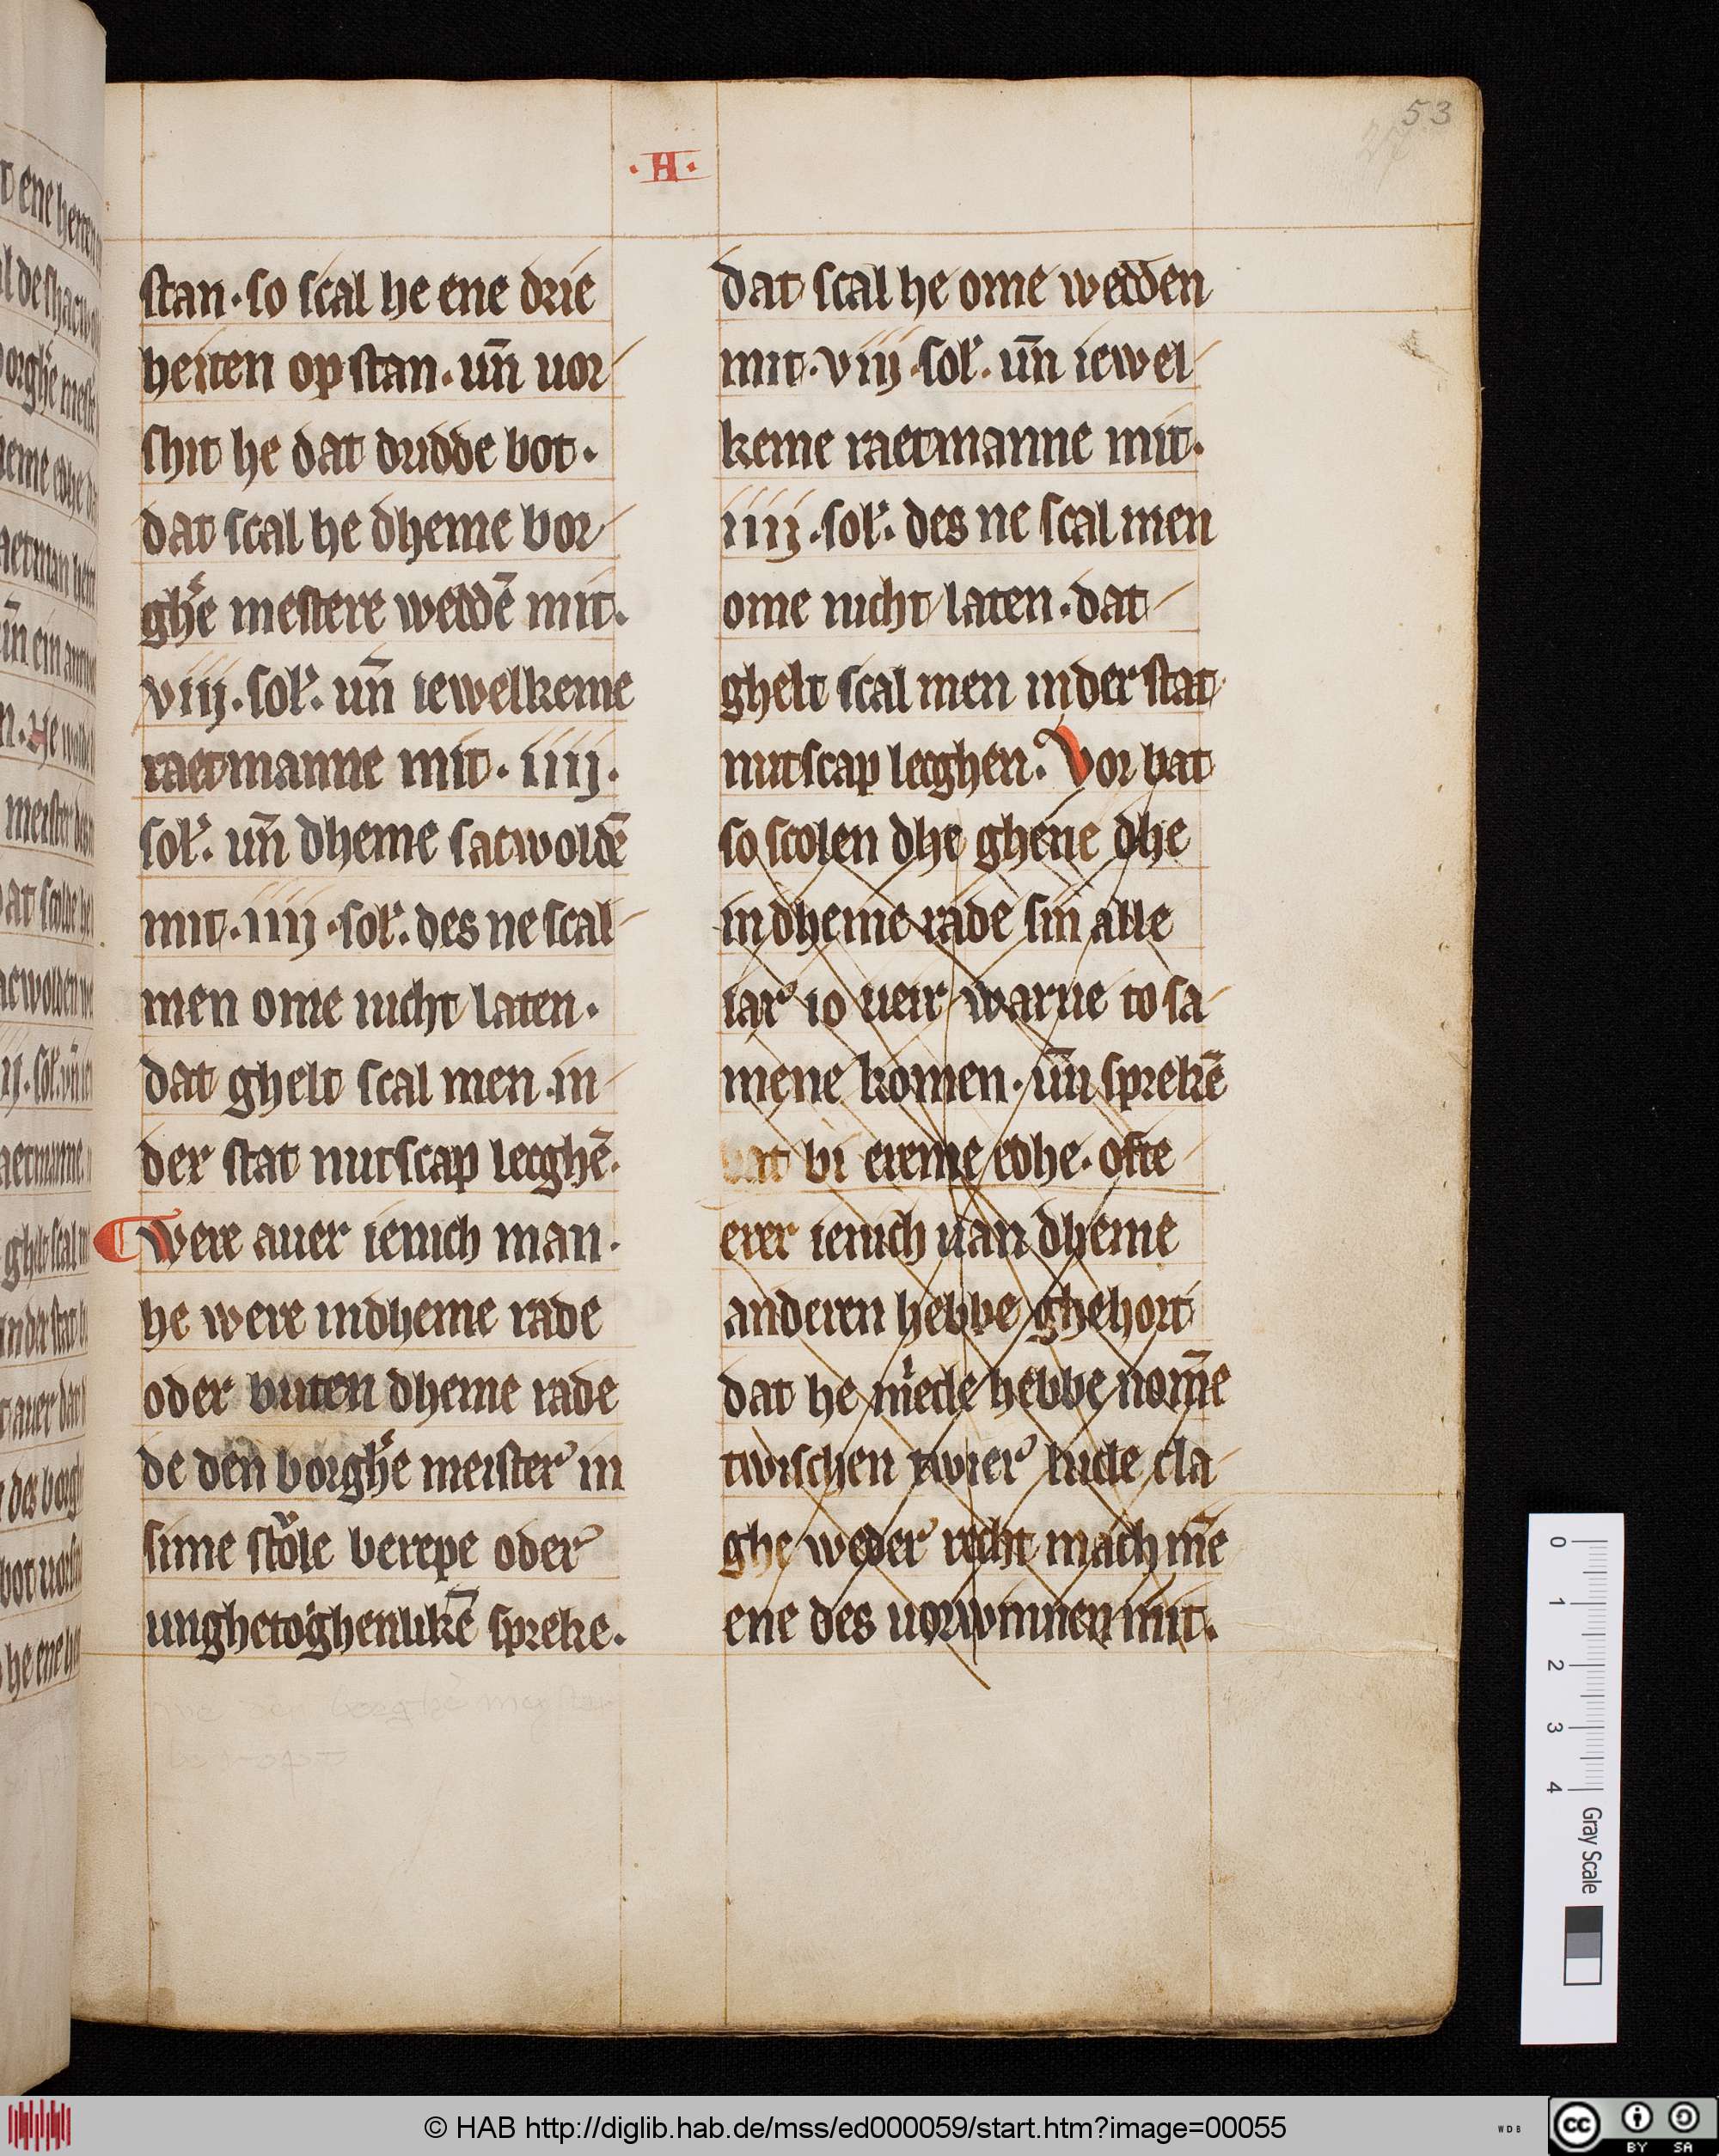 53
·H·
stan·so scal he ene drie
heiten op stan·un̄ uor
shit he dat dridde bot·
dat scal he dheme bor
gh'e mestere weddē mit·
viij·sol'·un̄ iewelkeme
raetmanne mit·iiij·
sol'·un̄ dheme sacwoldē
mit·iiij·sol'·des ne scal
men ome nicht laten·
dat ghelt scal men in
der stat nutscap lecghē·
were auer ienich man·
he were indheme rade
oder buten dheme rade
de den borgh'e meister in
sime stole berepe oder
unghetoghenlikē spreke·
dat scal he ome wedden
mit·viij·sol'·un̄ iewel
keme raetmanne mit·
iiij·sol'·des ne scal men
ome nicht laten·dat
ghelt scal men inder stat
nutscap lecghen·Vor bat
so scolen dhe ghene dhe
in dheme rade sin alle
iar io ueir warue to sa
mene komen·un̄ sprekē
dat bi ereme edhe·ofte
erer ienich uan dheme
anderen hebbe ghehort
dat he mede hebbe nom̄e
twischen twier lude cla
ghe weder recht mach mē
ene des uorwinnen mit·
0 1 2 3 4 Gray Scale
© HAB http://diglib.hab.de/mss/ed000059/start.htm?image=00055
WDB
cc BY SA